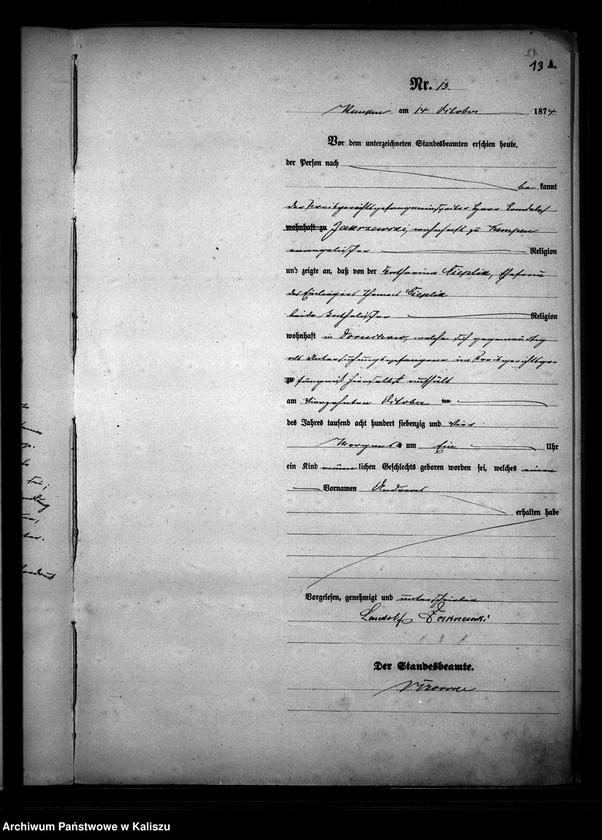 13 A.
Nr. 13.
Kempen am 14 Oktober 1874
Vor dem unterzeichneten Standesbeamten erschien heute,
der Person nach
be kannt
der Kreisgerichtsgefangeninspektor Herr Landolf
wohnhaft zu Jakrzewski, wohnhaft zu Kempen
evangelischer Religion
und zeigte an, daß von der Katharina Cieplik, Ehefrau
des Einliegers Thomas Cieplik
beide katholischer Religion
wohnhaft in welche sich gegenwärtig
als Untersuchungsgefangene im Kreisgerichtsge
zu fängniß hierselbst aufhält
am vierzehnten Oktober
des Jahres tausend acht hundert siebenzig und vier
Morgens um Ein Uhr
ein Kind männ lichen Geschlechts geboren worden sei, welches einen
Vornamen Andreas
erhalten habe
Vorgelesen, genehmigt und unterschrieben
Landolf
Der Standesbeamte.
Archiwum Państwowe w Kaliszu